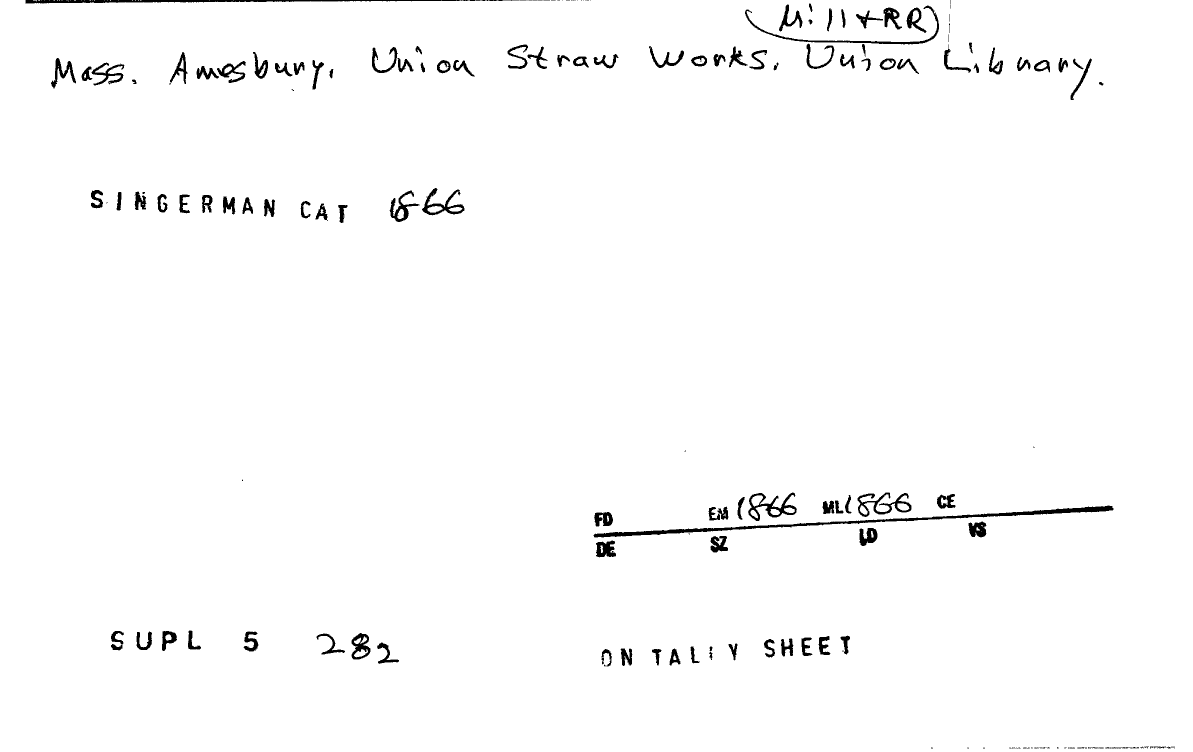 Mill + RR
Mass. Amesbury. Union Straw Works. Union Library.
SINGERMAN CAT 1866
FD EM 1866 ML 1866 CE
DE SZ LD VS
SUPL 5 282
ON TALLY SHEET